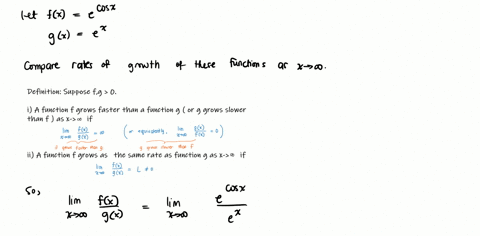 Let f(x) = e^{cosx}
g(x) = e^x
Compare rates of growth of these functions as x→∞.
Definition: Suppose f,g > 0.
i) A function f grows faster than a function g ( or g grows slower
than f ) as x->∞ if
lim x→∞ f(x)/g(x) = ∞ (or equivalently, lim x→∞ g(x)/f(x) = 0)
ii) A function f grows as the same rate as function g as x->∞ if
lim x→∞ f(x)/g(x) = L ≠ 0
So,
lim x→∞ f(x)/g(x) = lim x→∞ e^{cosx}/e^x